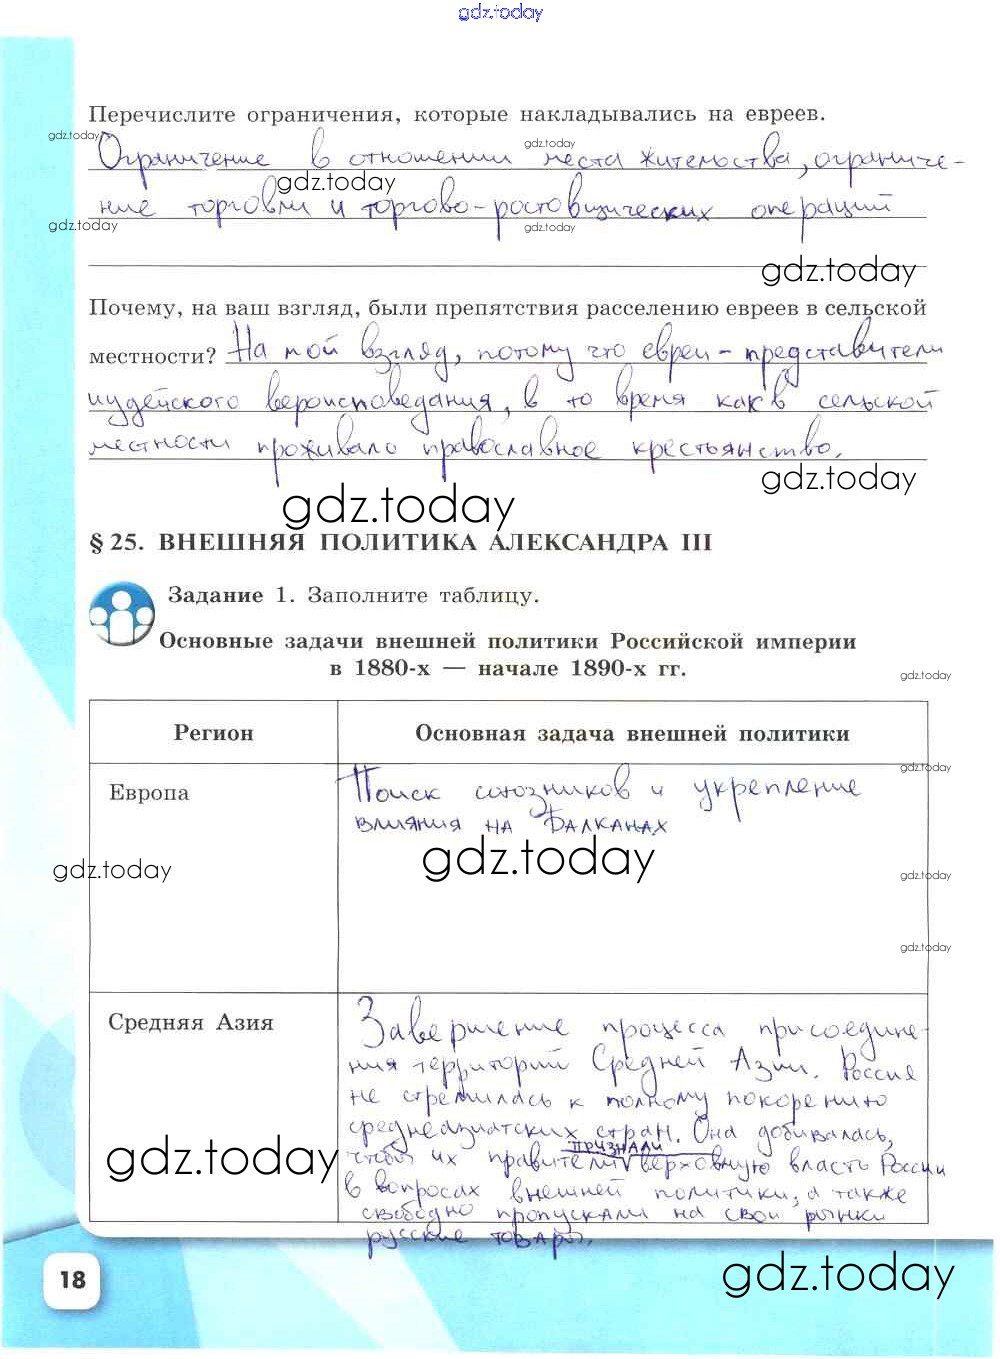 gdz.today
Перечислите ограничения, которые накладывались на евреев.
gdz.today
gdz.today
Ограничение в отношении места жительства, ограниче-
gdz.today
ние торговли и торгово-ростовщических операций
gdz.today
gdz.today
gdz.today
Почему, на ваш взгляд, были препятствия расселению евреев в сельской
местности? На мой взгляд, потому что евреи - представители
иудейского вероисповедания, в то время как в сельской
местности проживало православное крестьянство.
gdz.today
gdz.today
§ 25. ВНЕШНЯЯ ПОЛИТИКА АЛЕКСАНДРА III
Задание 1. Заполните таблицу.
Основные задачи внешней политики Российской империи
в 1880-х — начале 1890-х гг.
gdz.today
Регион
Основная задача внешней политики
gdz.today
Европа
Поиск союзников и укрепление
влияния на Балканах
gdz.today
gdz.today
gdz.today
gdz.today
Средняя Азия
Завершение процесса присоедине-
ния территорий Средней Азии. Россия
не стремилась к полному покорению
среднеазиатских стран. Она добивалась,
признали
чтобы их правители верховную власть России
в вопросах внешней политики, а также
свободно пропускали на свои рынки
русские товары.
gdz.today
18
gdz.today